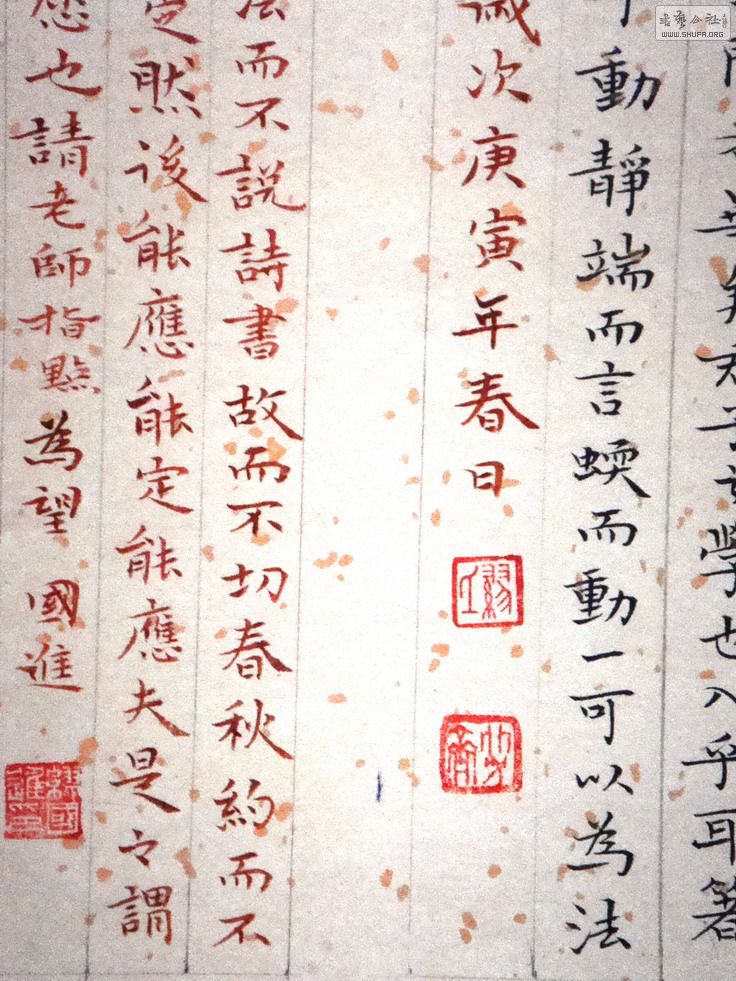 君子之學也入乎耳箸
動靜端而言蝡而動一可以為法
歲次庚寅年春日
法而不說詩書故而不切春秋約而不
定然後能應能定能應夫是之謂
也請老師指點為望 國進
韓國進印
WWW.SHUFA.ORG